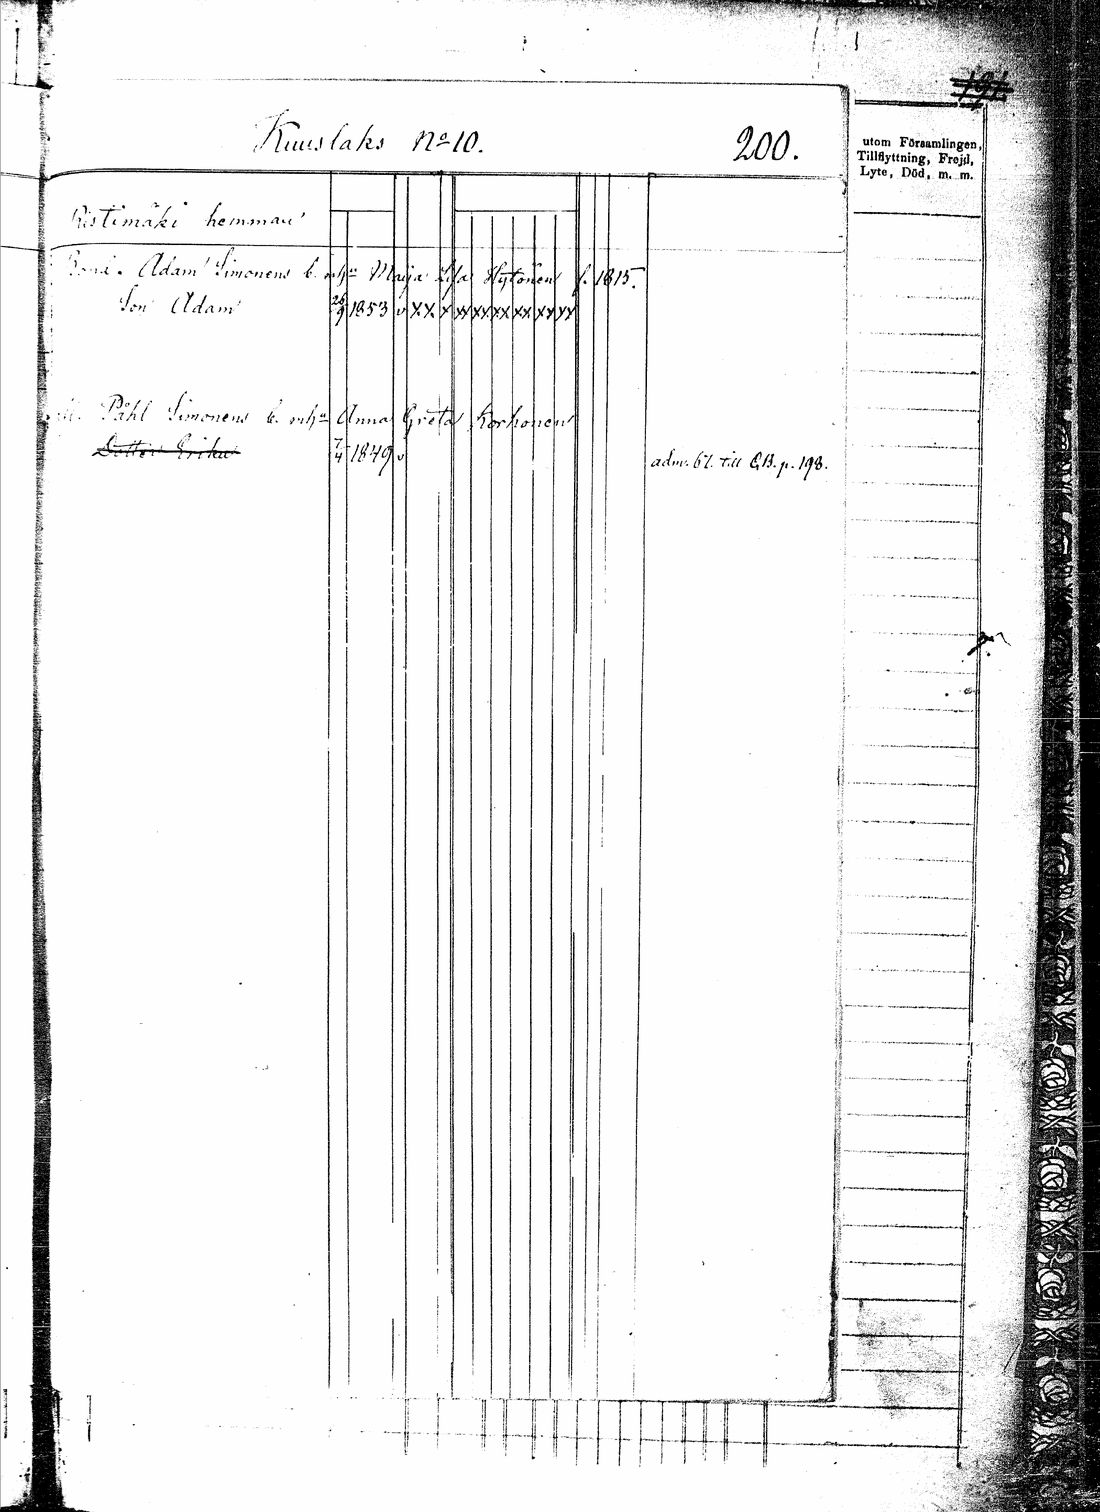 191
Kuuslaks No 10. 200.
utom Församlingen,
Tillflyttning, Frejd,
Lyte, Död, m. m.
Ristimäki hemman
Bond. Adam Simonens b. mh:n Maija Lisa Hytönen f. 1815.
Son Adam 26/9 1853 v XX X XX XX XX XX XX XX
Påhl Simonens b. mh:n Anna Greta Korhonen
Dotter Erika 7/4 1849 v adm. 67. till C.B. p. 198.